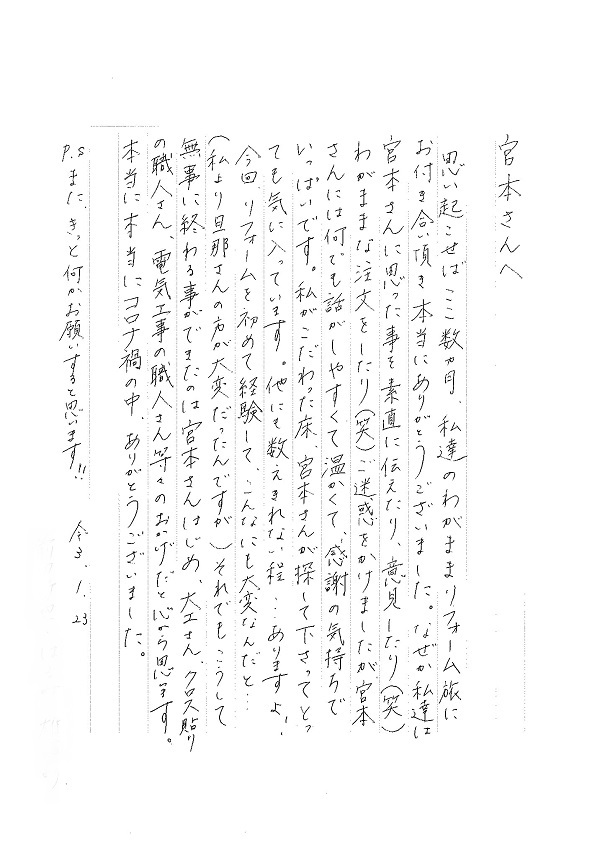 宮本さんへ
思い起こせばここ数ヵ月、私達のわがままリフォーム旅に
お付き合い頂き本当にありがとうございました。なぜか私達は
宮本さんに思った事を素直に伝えたり、意見したり(笑)
わがままな注文をしたり(笑)ご迷惑をかけましたが宮本
さんには何でも話がしやすくて温かくて、感謝の気持ちで
いっぱいです。私がこだわった床、宮本さんが探して下さってとっ
ても気に入っています。他にも数えきれない程…ありますよ!
今回、リフォームを初めて経験して、こんなにも大変なんだと…
(私より旦那さんの方が大変だったんですが)それでもこうして
無事に終わる事ができたのは宮本さんはじめ、大工さん、クロス貼り
の職人さん、電気工事の職人さん等々のおかげだと心から思います。
本当に本当にコロナ禍の中、ありがとうございました。
P.S また、きっと何かお願いすると思います!! 令3.1.23